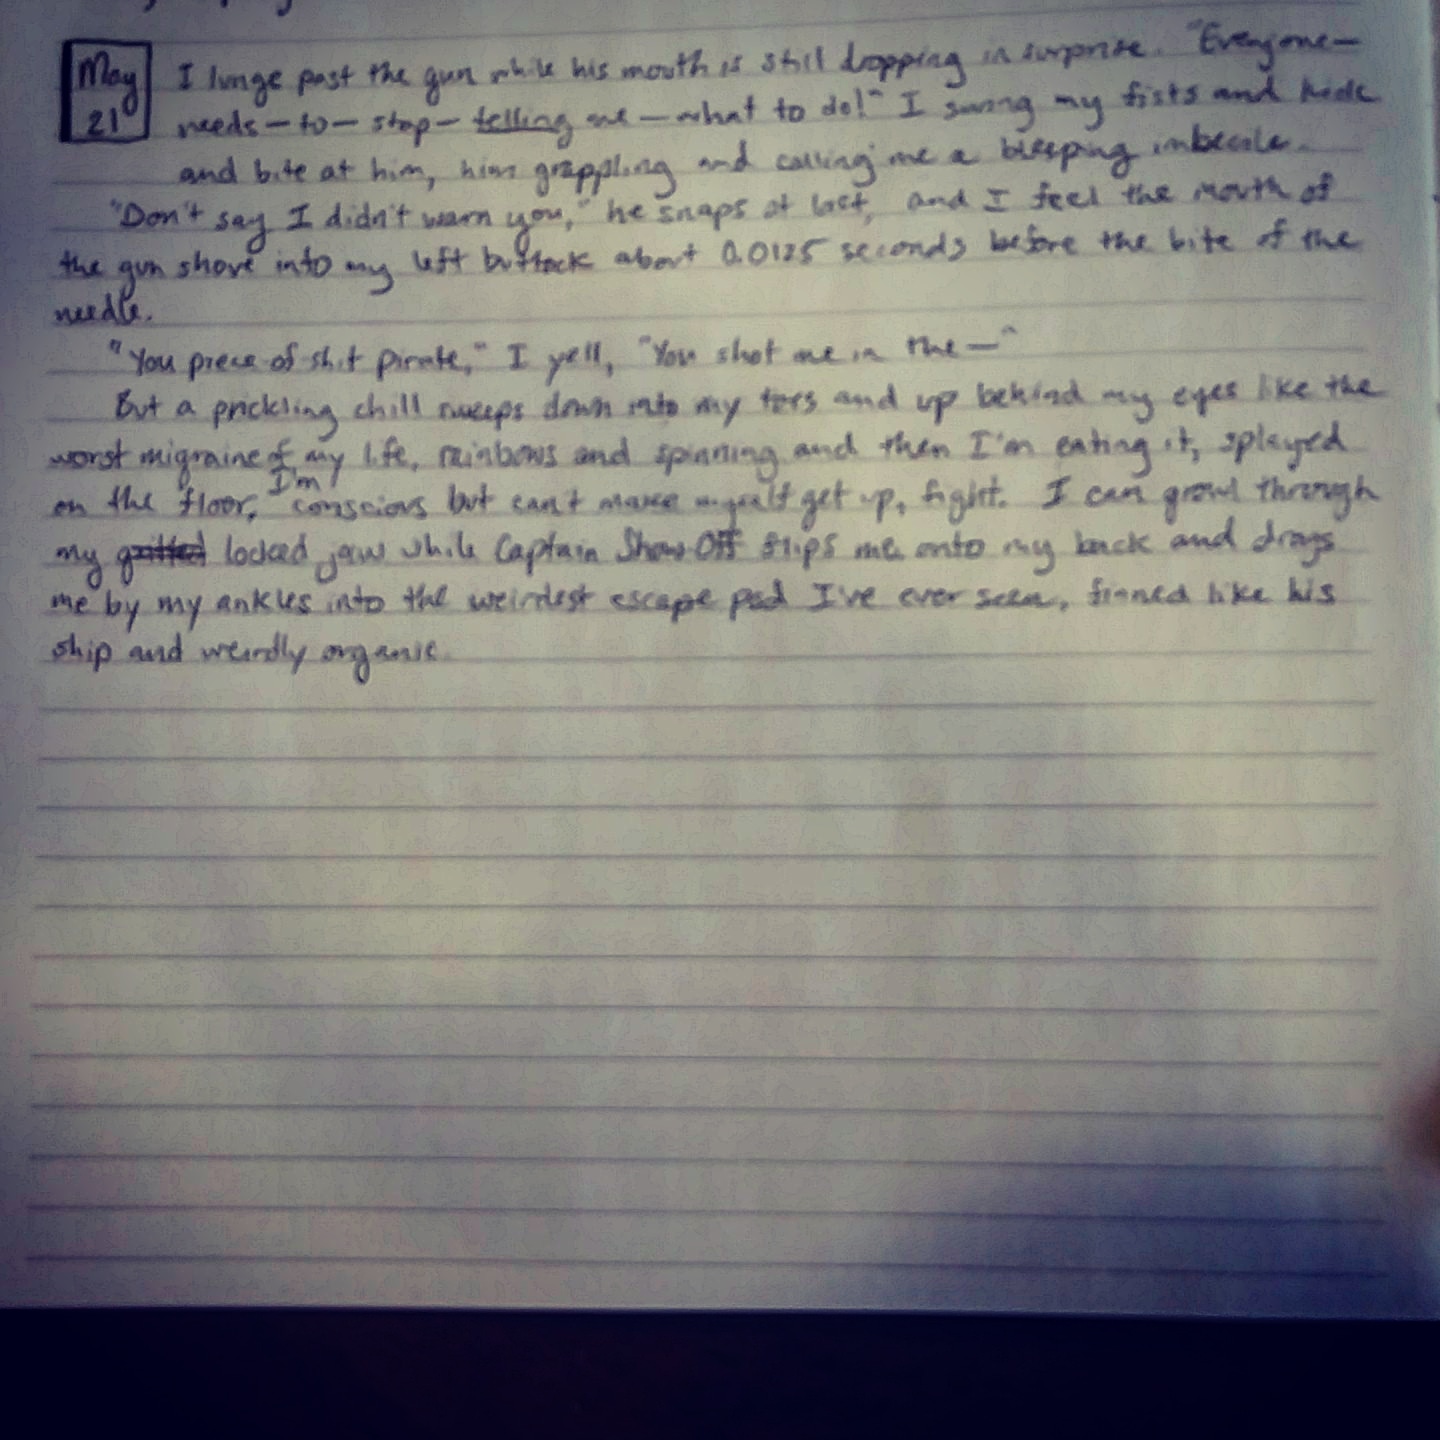 May
21
I lunge past the gun while his mouth is still dropping in surprise. "Everyone—
needs—to—stop—telling me—what to do!" I swing my fists and kick
and bite at him, him grappling and calling me a bleeping imbecile.
"Don't say I didn't warn you," he snaps at last, and I feel the mouth of
the gun shove into my left buttock about 0.0125 seconds before the bite of the
needle.
"You piece of shit pirate," I yell, "You shot me in the—"
But a prickling chill sweeps down into my toes and up behind my eyes like the
worst migraine of my life, rainbows and spinning and then I'm eating it, splayed
on the floor, I'm conscious but can't make myself get up, fight. I can growl through
my gritted locked jaw while Captain Show-Off flips me onto my back and drags
me by my ankles into the weirdest escape pod I've ever seen, finned like his
ship and weirdly organic.